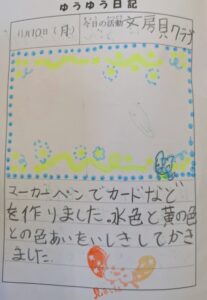 ゆうゆう日記
11月10日(月)
今日の活動 文房具クラブ
マーカーペンでカードなど
を作りました。水色と黄の色
との色あいをいしきしてかき
ました